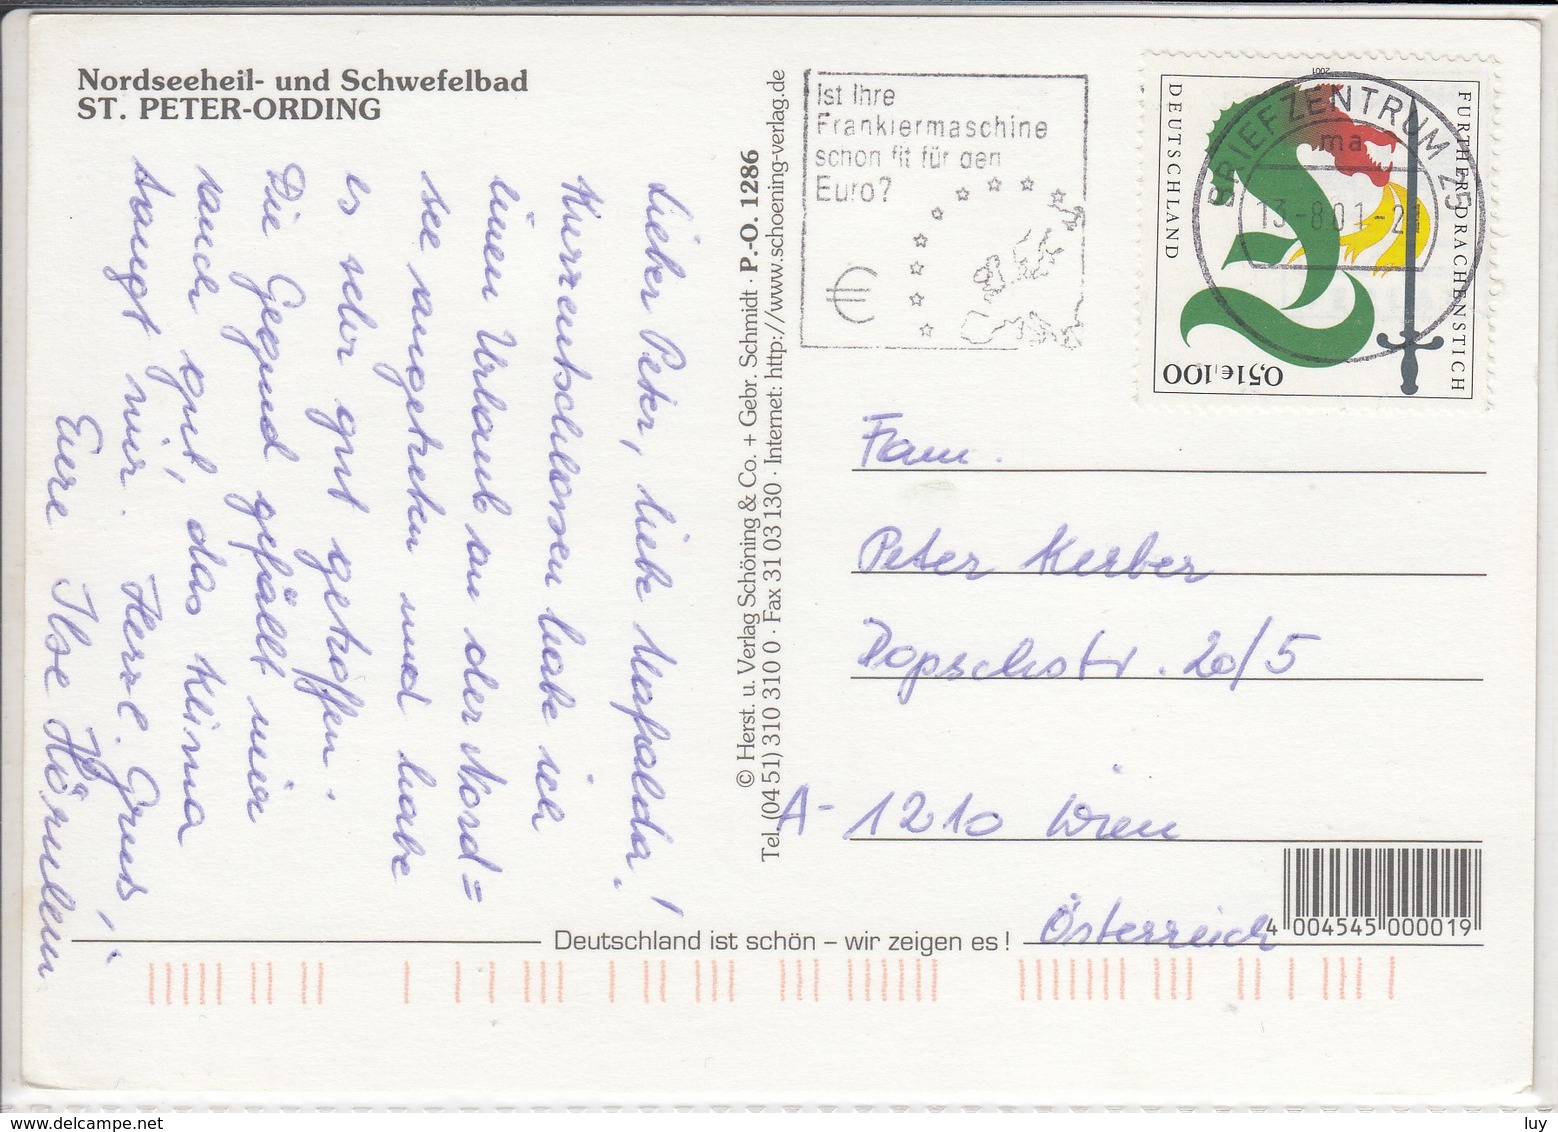 Nordseeheil- und Schwefelbad
ST. PETER-ORDING
Lieber Peter, liebe Mafalda!
Kurzentschlossen habe ich
einen Urlaub an der Nord=
see angetreten und habe
es sehr gut getroffen.
Die Gegend gefällt mir
auch gut, das Klima
taugt mir. Herzl. Grüße,
Eure Ilse
© Herst. u. Verlag Schöning & Co. + Gebr. Schmidt · P.-O. 1286
Tel. (04 51) 310 310 0 · Fax 31 03 130 · Internet: http://www.schoening-verlag.de
Ist Ihre
Frankiermaschine
schon fit für den
Euro?
€
BRIEFZENTRUM 25
ma
13-8.01-21
DEUTSCHLAND
2001
FURTHER DRACHENSTICH
0,51€ 100
Fam.
Peter Kerber
Dopschstr. 20/5
A-1210 Wien
Österreich
4 004545 000019
Deutschland ist schön – wir zeigen es !
delcampe.net
luy